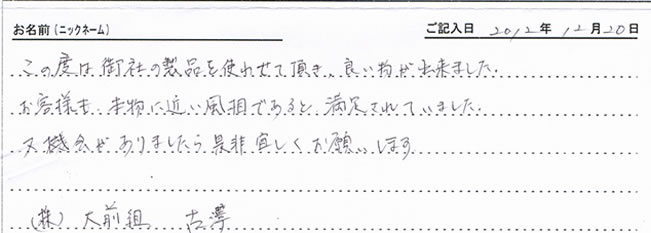 お名前(ニックネーム) ご記入日 2012年 12月20日
この度は御社の製品を使わせて頂き、良い物が出来ました。
お客様も、本物に近い風相であると、満足されていました。
又機会がありましたら是非宜しくお願いします
(株)大前組 古澤